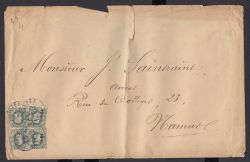 Monsieur J. Saintraint
Avocat
Rue de Collège, 23,
Namur